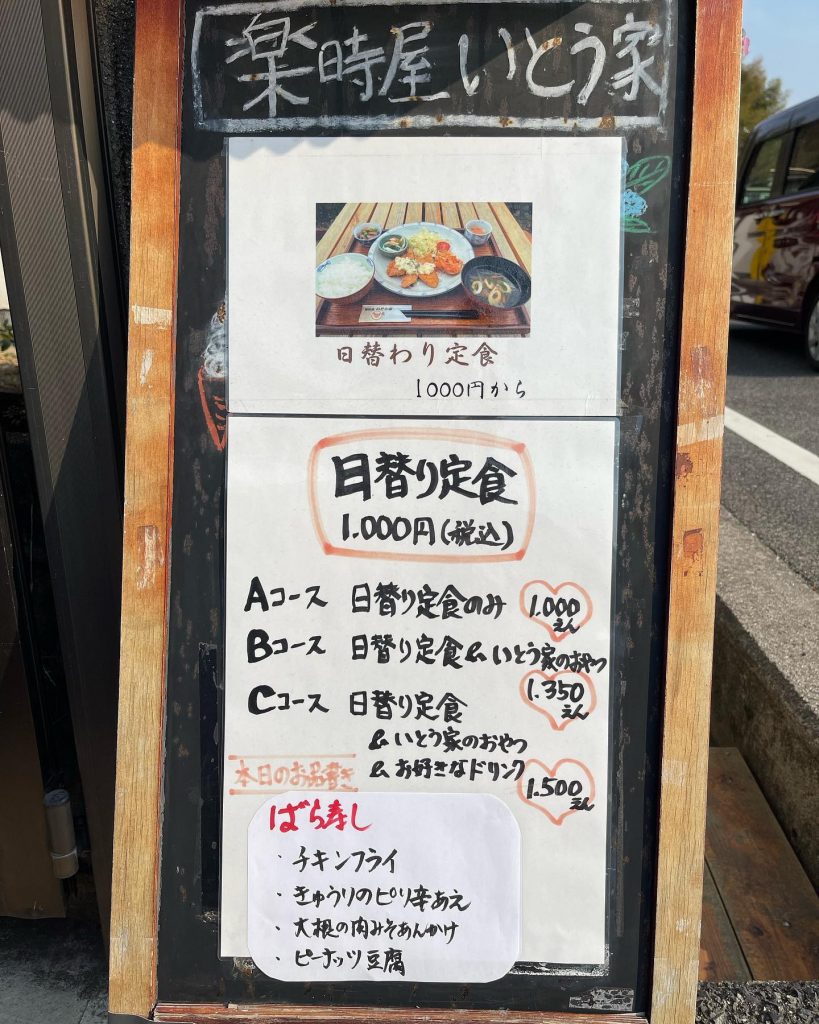 楽時屋いとう家
日替わり定食
1000円から
日替り定食
1.000円(税込)
Aコース 日替り定食のみ 1.000えん
Bコース 日替り定食&いとう家のおやつ
1.350えん
Cコース 日替り定食
&いとう家のおやつ
&お好きなドリンク 1.500えん
本日のお品書き
ばら寿し
・チキンフライ
・きゅうりのピリ辛あえ
・大根の肉みそあんかけ
・ピーナッツ豆腐